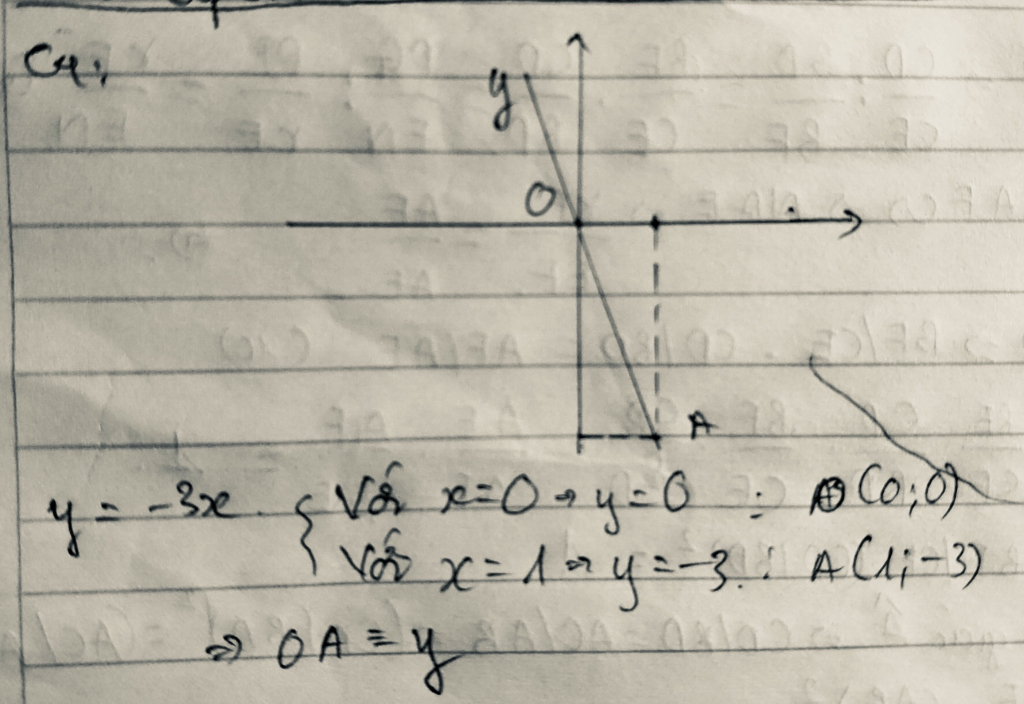 C4:
y
O
A
y = -3x. { Với x=0 → y=0 : O(0;0)
Với x=1 → y=-3. : A(1;-3)
⇒ OA ≡ y